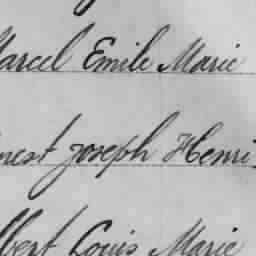 Marcel Emile Marie
nest Joseph Henri
lbert Louis Marie